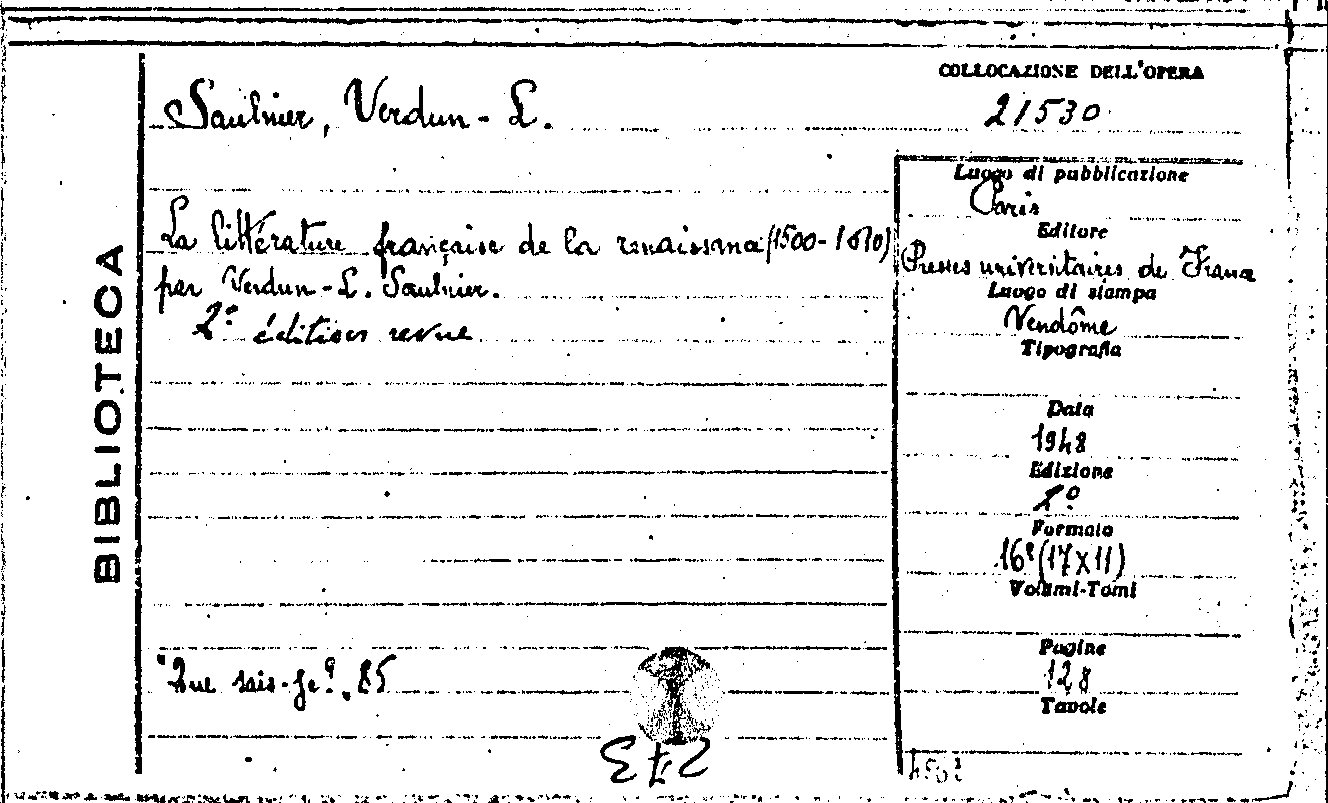 COLLOCAZIONE DELL'OPERA
21530
Saulnier, Verdun-L.
La littérature française de la renaissance (1500-1610)
par Verdun-L. Saulnier.
2e édition revue
"Que sais-je?" 85
BIBLIOTECA
Luogo di pubblicazione
Paris
Editore
Presses universitaires de France
Luogo di stampa
Vendôme
Tipografia
Data
1948
Edizione
2º
Formato
16º (17x11)
Volumi-Tomi
Pagine
128
Tavole